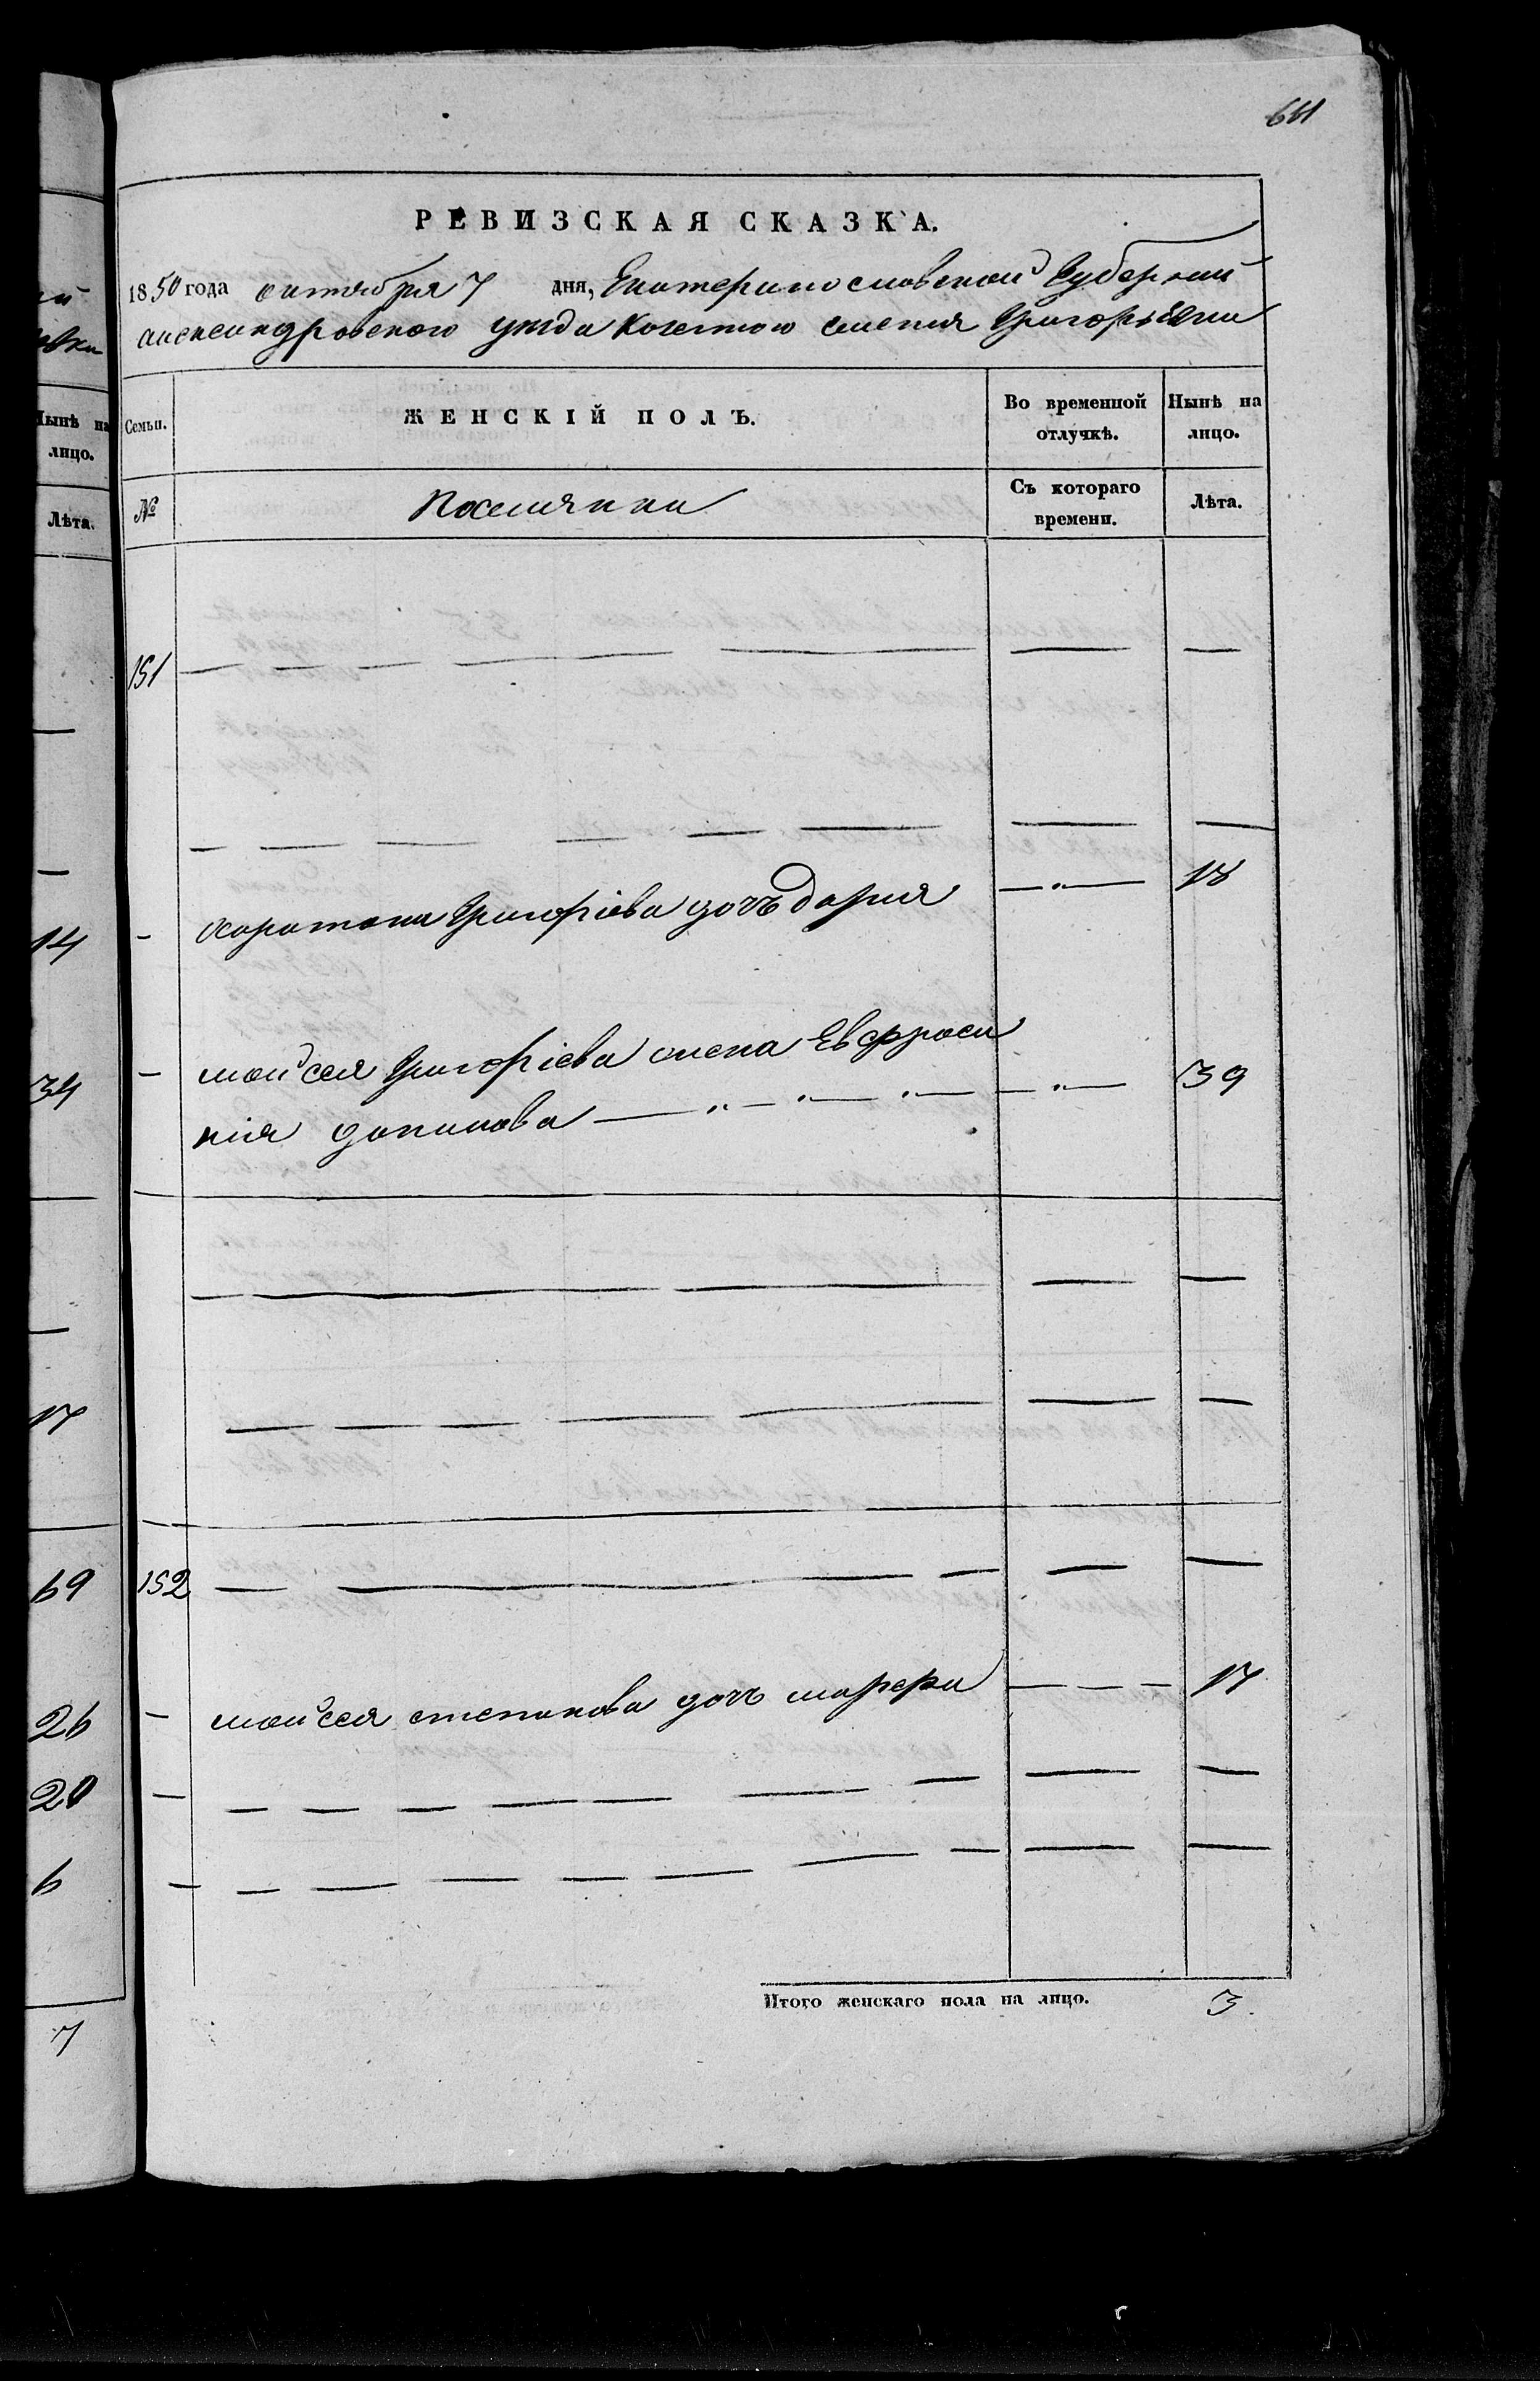 611
РЕВИЗСКАЯ СКАЗКА.
1850 года октября 7 дня, Екатеринославской Губернии
александровского уезда Козенного селения Григорьевки
Семьи.
ЖЕНСКІЙ ПОЛЪ.
Во временной отлучкѣ.
Нынѣ на лицо.
№
Поселянки
Съ котораго времени.
Лѣта.
151 — — — — — — —
— — — — — — — —
- Харитона Григоріева дочъ дария —"— 18
- мойсея Григоріева жена Евфроси
ния данилова —"—"—"—"— 39
— — — — —
— — — — — — —
152 — — — — —
- мойсея степанова дочъ марфа — — — 17
- — — — — — — — — —
- — — — — — — — — —
Итого женскаго пола на лицо. 3.
Нынѣ на
лицо.
Лѣта.
14
34
17
69
26
20
6
7